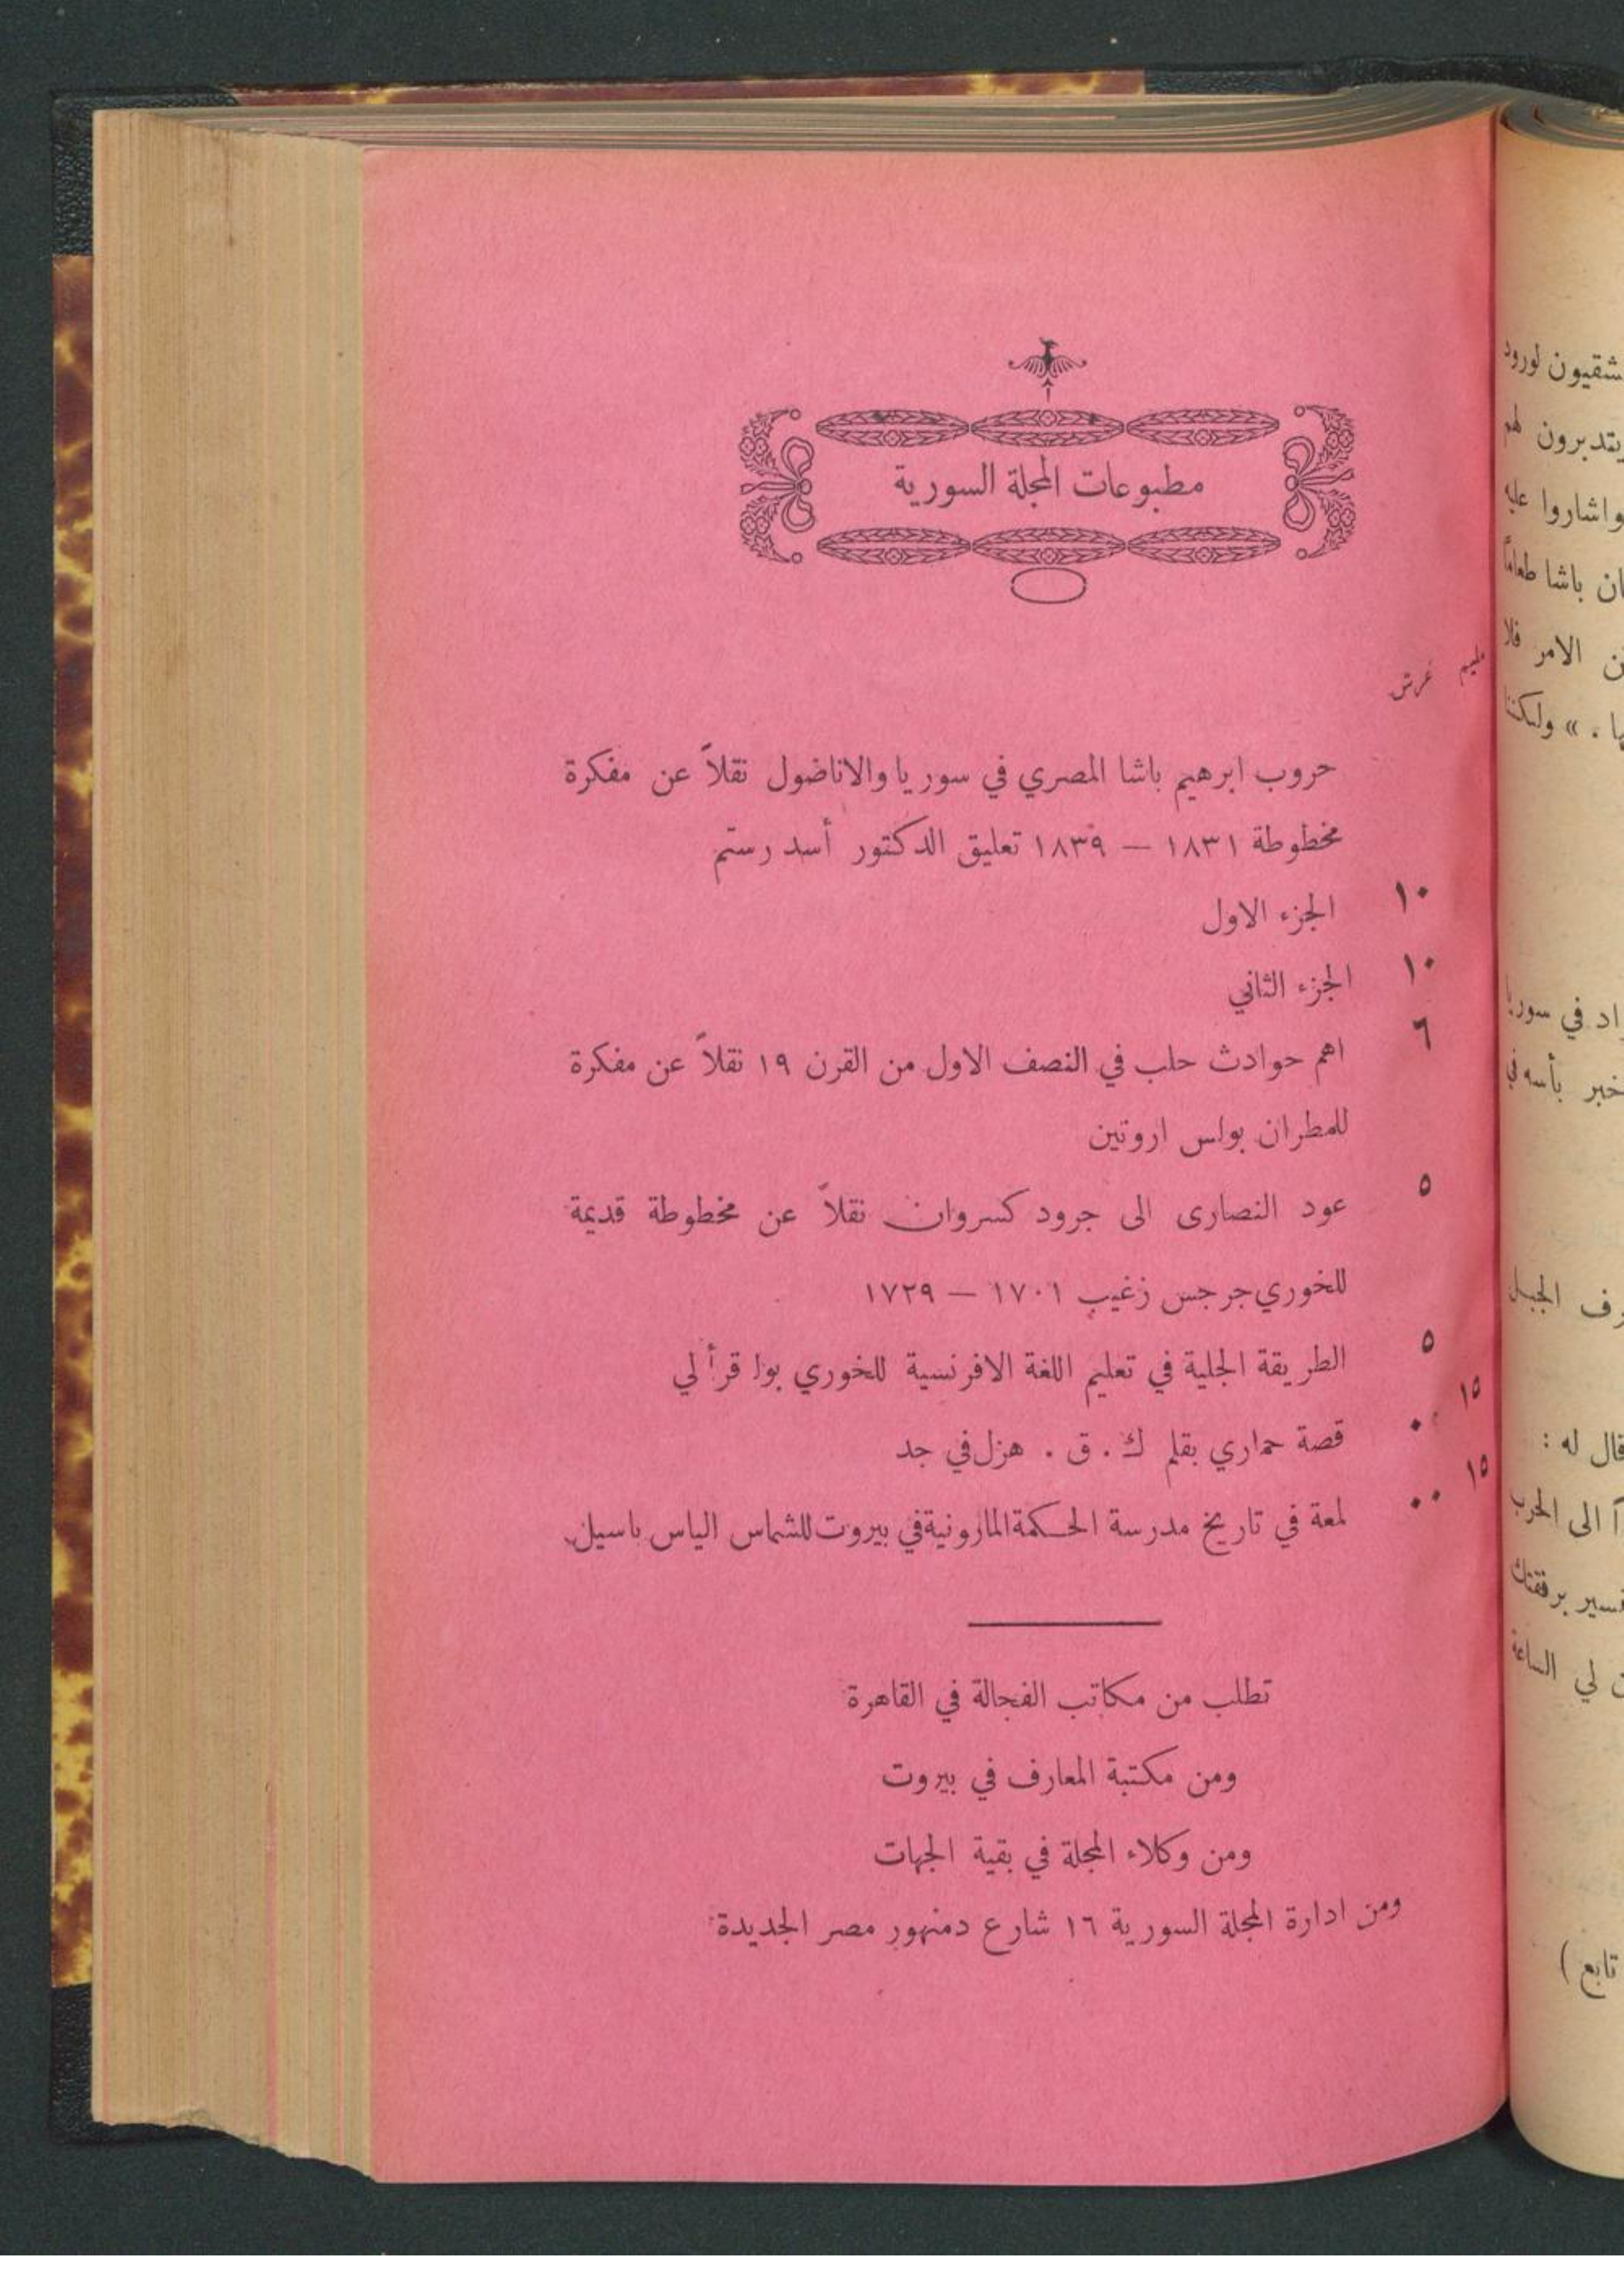 مطبوعات المجلة السورية
مليم غرش
حروب ابرهيم باشا المصري في سوريا والاناضول نقلاً عن مفكرة
مخطوطة ١٨٣١ — ١٨٣٩ تعليق الدكتور أسد رستم
١٠ الجزء الاول
١٠ الجزء الثاني
٦ اهم حوادث حلب في النصف الاول من القرن ١٩ نقلاً عن مفكرة
للمطران بولس اروتين
٥ عود النصارى الى جرود كسروان نقلاً عن مخطوطة قديمة
للخوري جرجس زغيب ١٧٠١ — ١٧٢٩
٥ الطريقة الجلية في تعليم اللغة الافرنسية للخوري بولس قرألي
١٥ ٠٠ قصة حماري بقلم ك . ق . هزل في جد
١٥ ٠٠ لمعة في تاريخ مدرسة الحكمة المارونية في بيروت للشماس الياس باسيل
تطلب من مكاتب الفجالة في القاهرة
ومن مكتبة المعارف في بيروت
ومن وكلاء المجلة في بقية الجهات
ومن ادارة المجلة السورية ١٦ شارع دمنهور مصر الجديدة
لورود
يتدبرون لهم
واشاروا عليه
باشا طعاماً
الامر فلا
. » ولكننا
في سوريا
بأسه في
الجبل
قال له :
الى الحرب
برفقتك
لي الساعة
تابع )